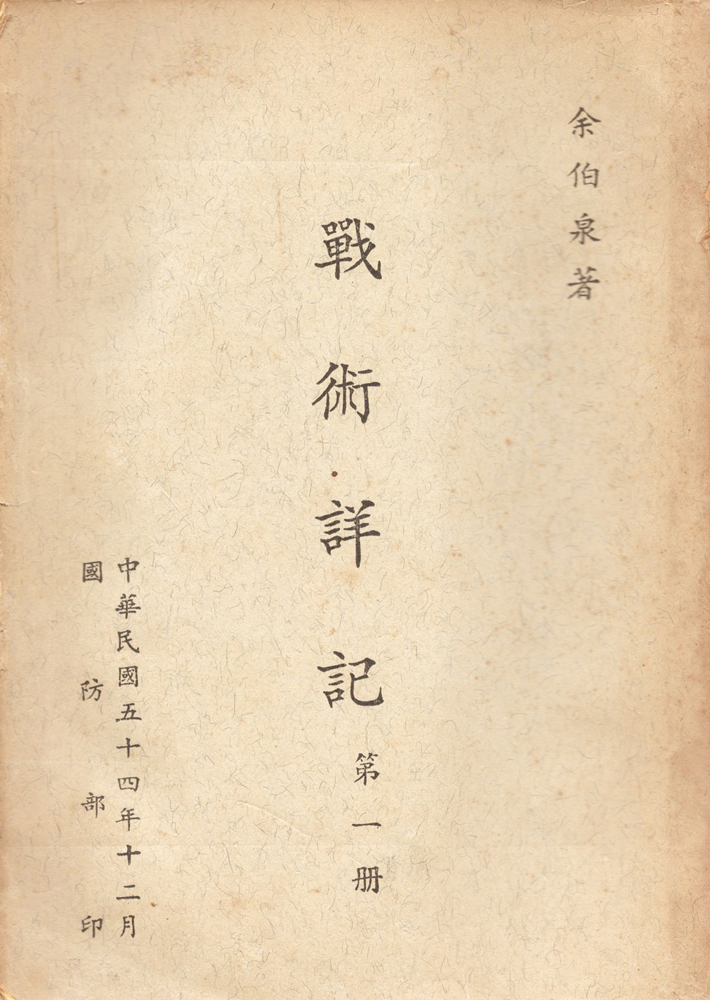 余伯泉著
戰術詳記
第一册
中華民國五十四年十二月
國防部印